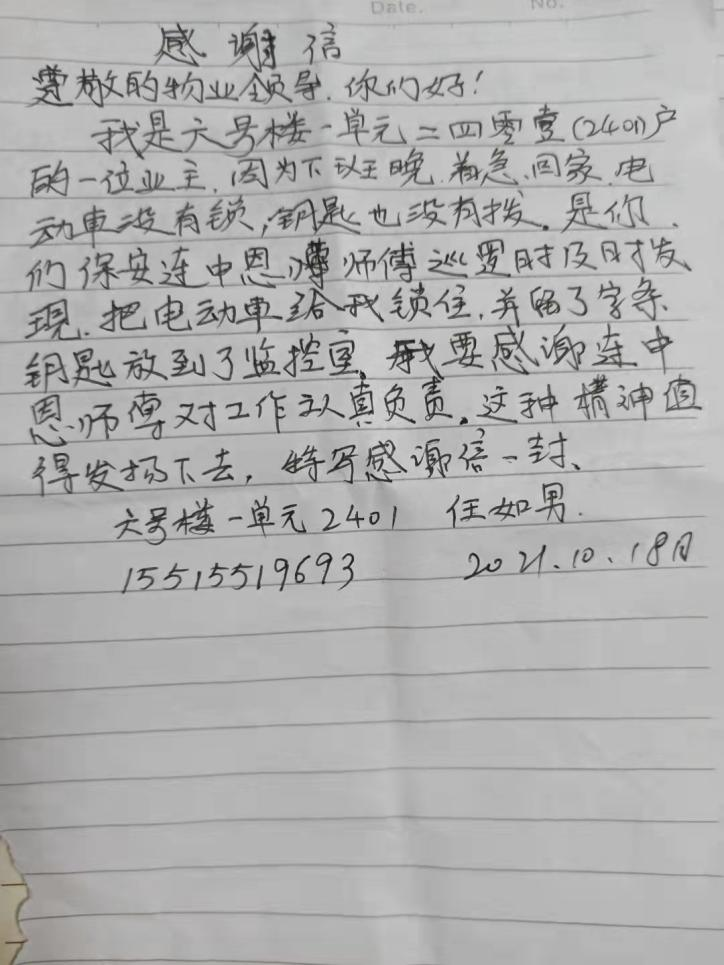 Date. No.
感谢信
尊敬的物业领导.你们好!
我是六号楼一单元二四零壹(2401)户
的一位业主.因为下班晚.着急.回家.电
动車没有锁,钥匙也没有拨.是你
们保安连中恩师傅巡置时及时发
現.把电动車给我锁住.并留了字条
钥匙放到了监控室.我要感谢连中
恩师傅对工作认真负责.这种精神值
得发扬下去,特写感谢信一封、
六号楼一单元2401 任如男.
15515519693 2021.10.18日